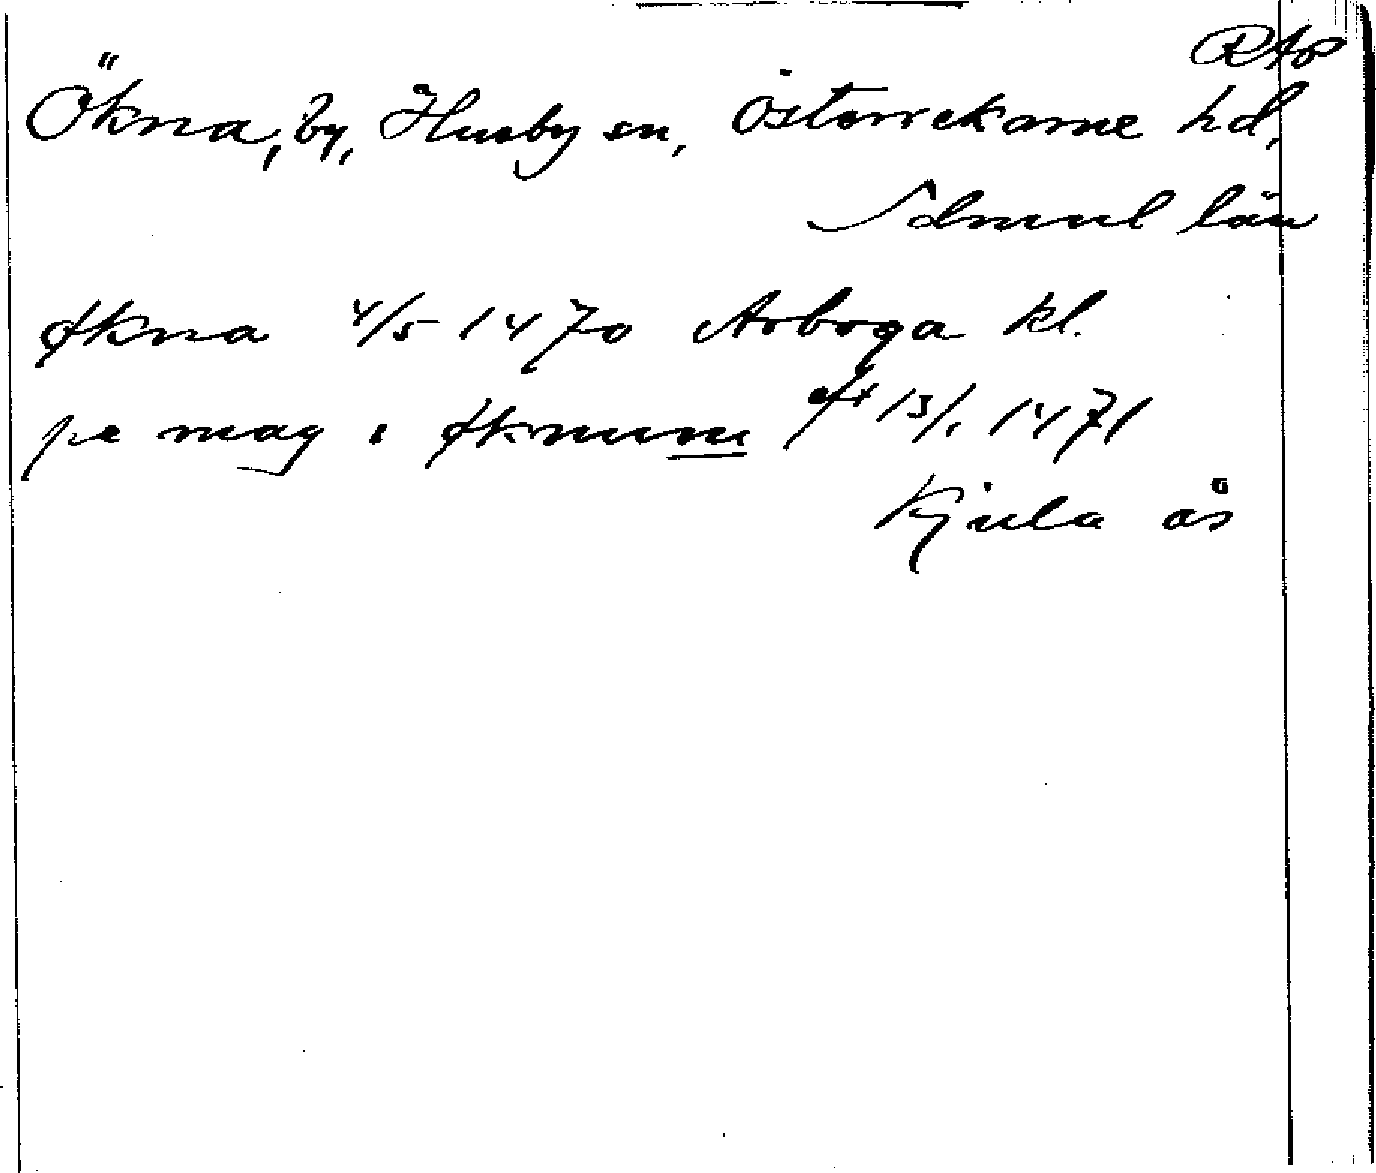 RAp
Ökna, by, Husby sn, Österrekarne hd,
Södermanl län
økna 4/5 1470 Arboga kl.
pe mag i øknum aft 13/1 1471
Kjula ås